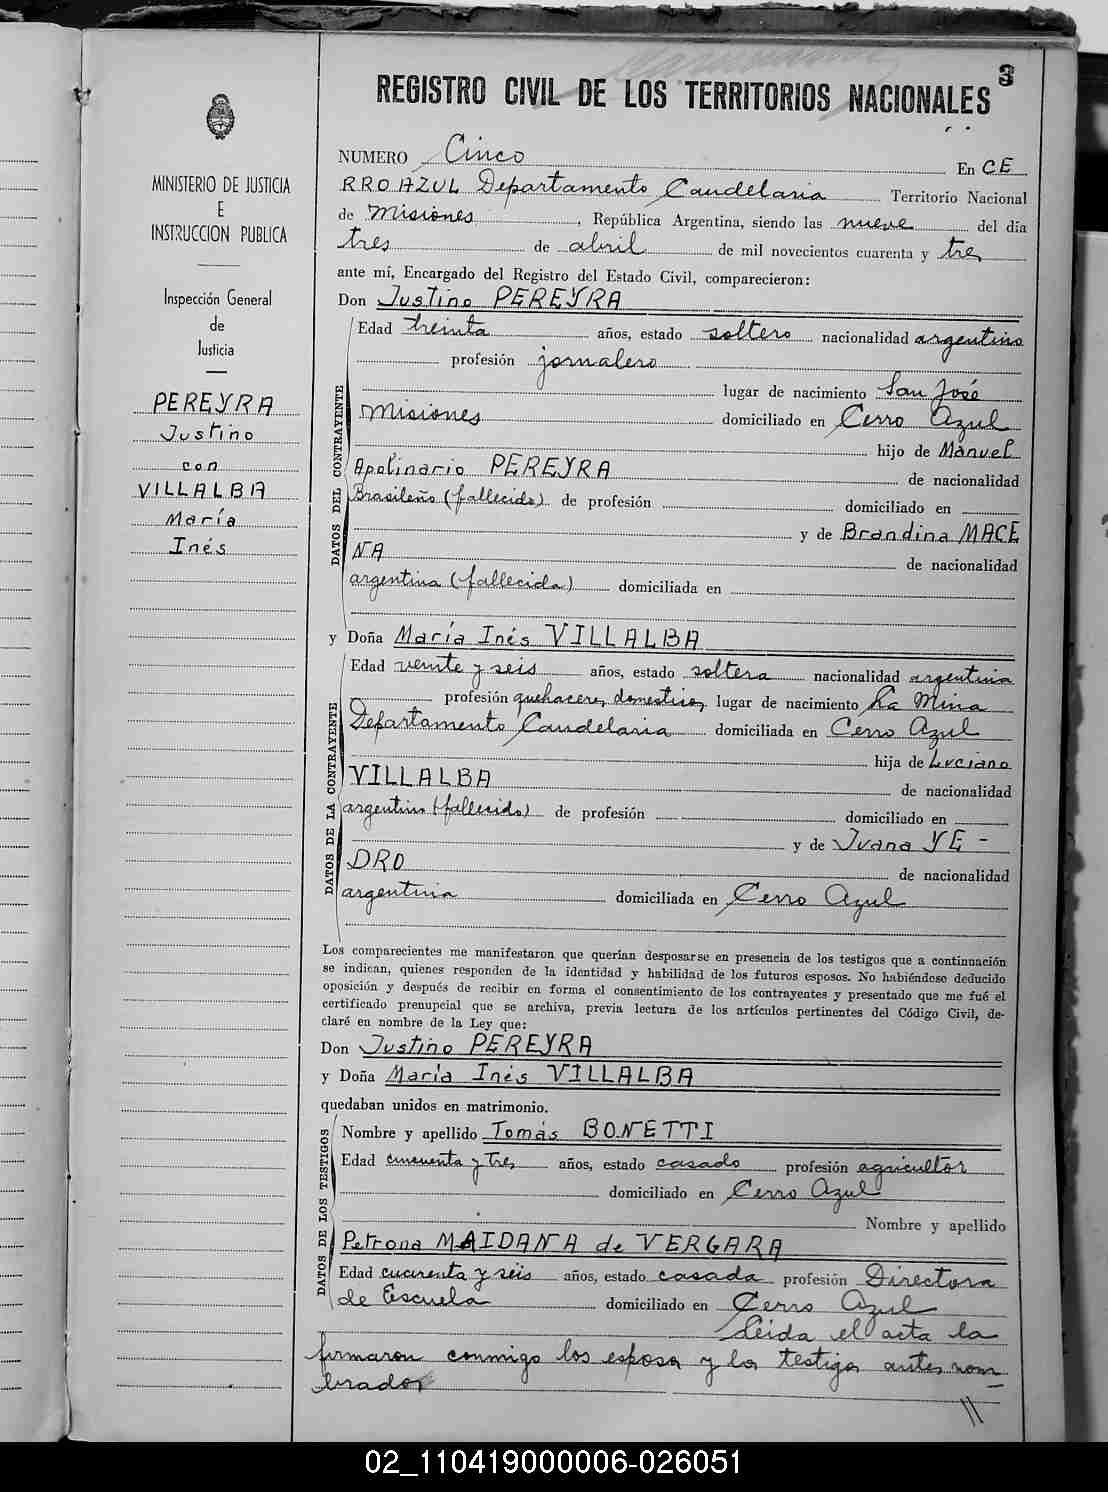 3
REGISTRO CIVIL DE LOS TERRITORIOS NACIONALES
MINISTERIO DE JUSTICIA
E
INSTRUCCION PUBLICA
Inspección General
de
Justicia
PEREYRA
Justino
con
VILLALBA
María
Inés
NUMERO Cinco En CE
RRO AZUL Departamento Candelaria Territorio Nacional
de Misiones, República Argentina, siendo las nueve del día
tres de abril de mil novecientos cuarenta y tres
ante mí, Encargado del Registro del Estado Civil, comparecieron:
Don Justino PEREYRA
DATOS DEL CONTRAYENTE
Edad treinta años, estado soltero nacionalidad argentino
profesión jornalero
lugar de nacimiento San José
Misiones domiciliado en Cerro Azul
hijo de Manuel
Apolinario PEREYRA de nacionalidad
Brasileño (fallecido) de profesión domiciliado en
y de Brandina MACE
NA de nacionalidad
argentina (fallecida) domiciliada en
y Doña María Inés VILLALBA
DATOS DE LA CONTRAYENTE
Edad veinte y seis años, estado soltera nacionalidad argentina
profesión quehaceres domesticos lugar de nacimiento La Mina
Departamento Candelaria domiciliada en Cerro Azul
hija de Luciano
VILLALBA de nacionalidad
argentino (fallecido) de profesión domiciliado en
y de Juana YE-
DRO de nacionalidad
argentina domiciliada en Cerro Azul
Los comparecientes me manifestaron que querían desposarse en presencia de los testigos que a continuación
se indican, quienes responden de la identidad y habilidad de los futuros esposos. No habiéndose deducido
oposición y después de recibir en forma el consentimiento de los contrayentes y presentado que me fué el
certificado prenupcial que se archiva, previa lectura de los artículos pertinentes del Código Civil, de-
claré en nombre de la Ley que:
Don Justino PEREYRA
y Doña María Inés VILLALBA
quedaban unidos en matrimonio.
DATOS DE LOS TESTIGOS
Nombre y apellido Tomás BONETTI
Edad cincuenta y tres años, estado casado profesión agricultor
domiciliado en Cerro Azul
Nombre y apellido
Petrona MAIDANA de VERGARA
Edad cuarenta y seis años, estado casada profesión Directora
de Escuela domiciliado en Cerro Azul
Leida el acta la
firmaron conmigo los esposos y los testigos antes nom
brados
//
02_110419000006-026051